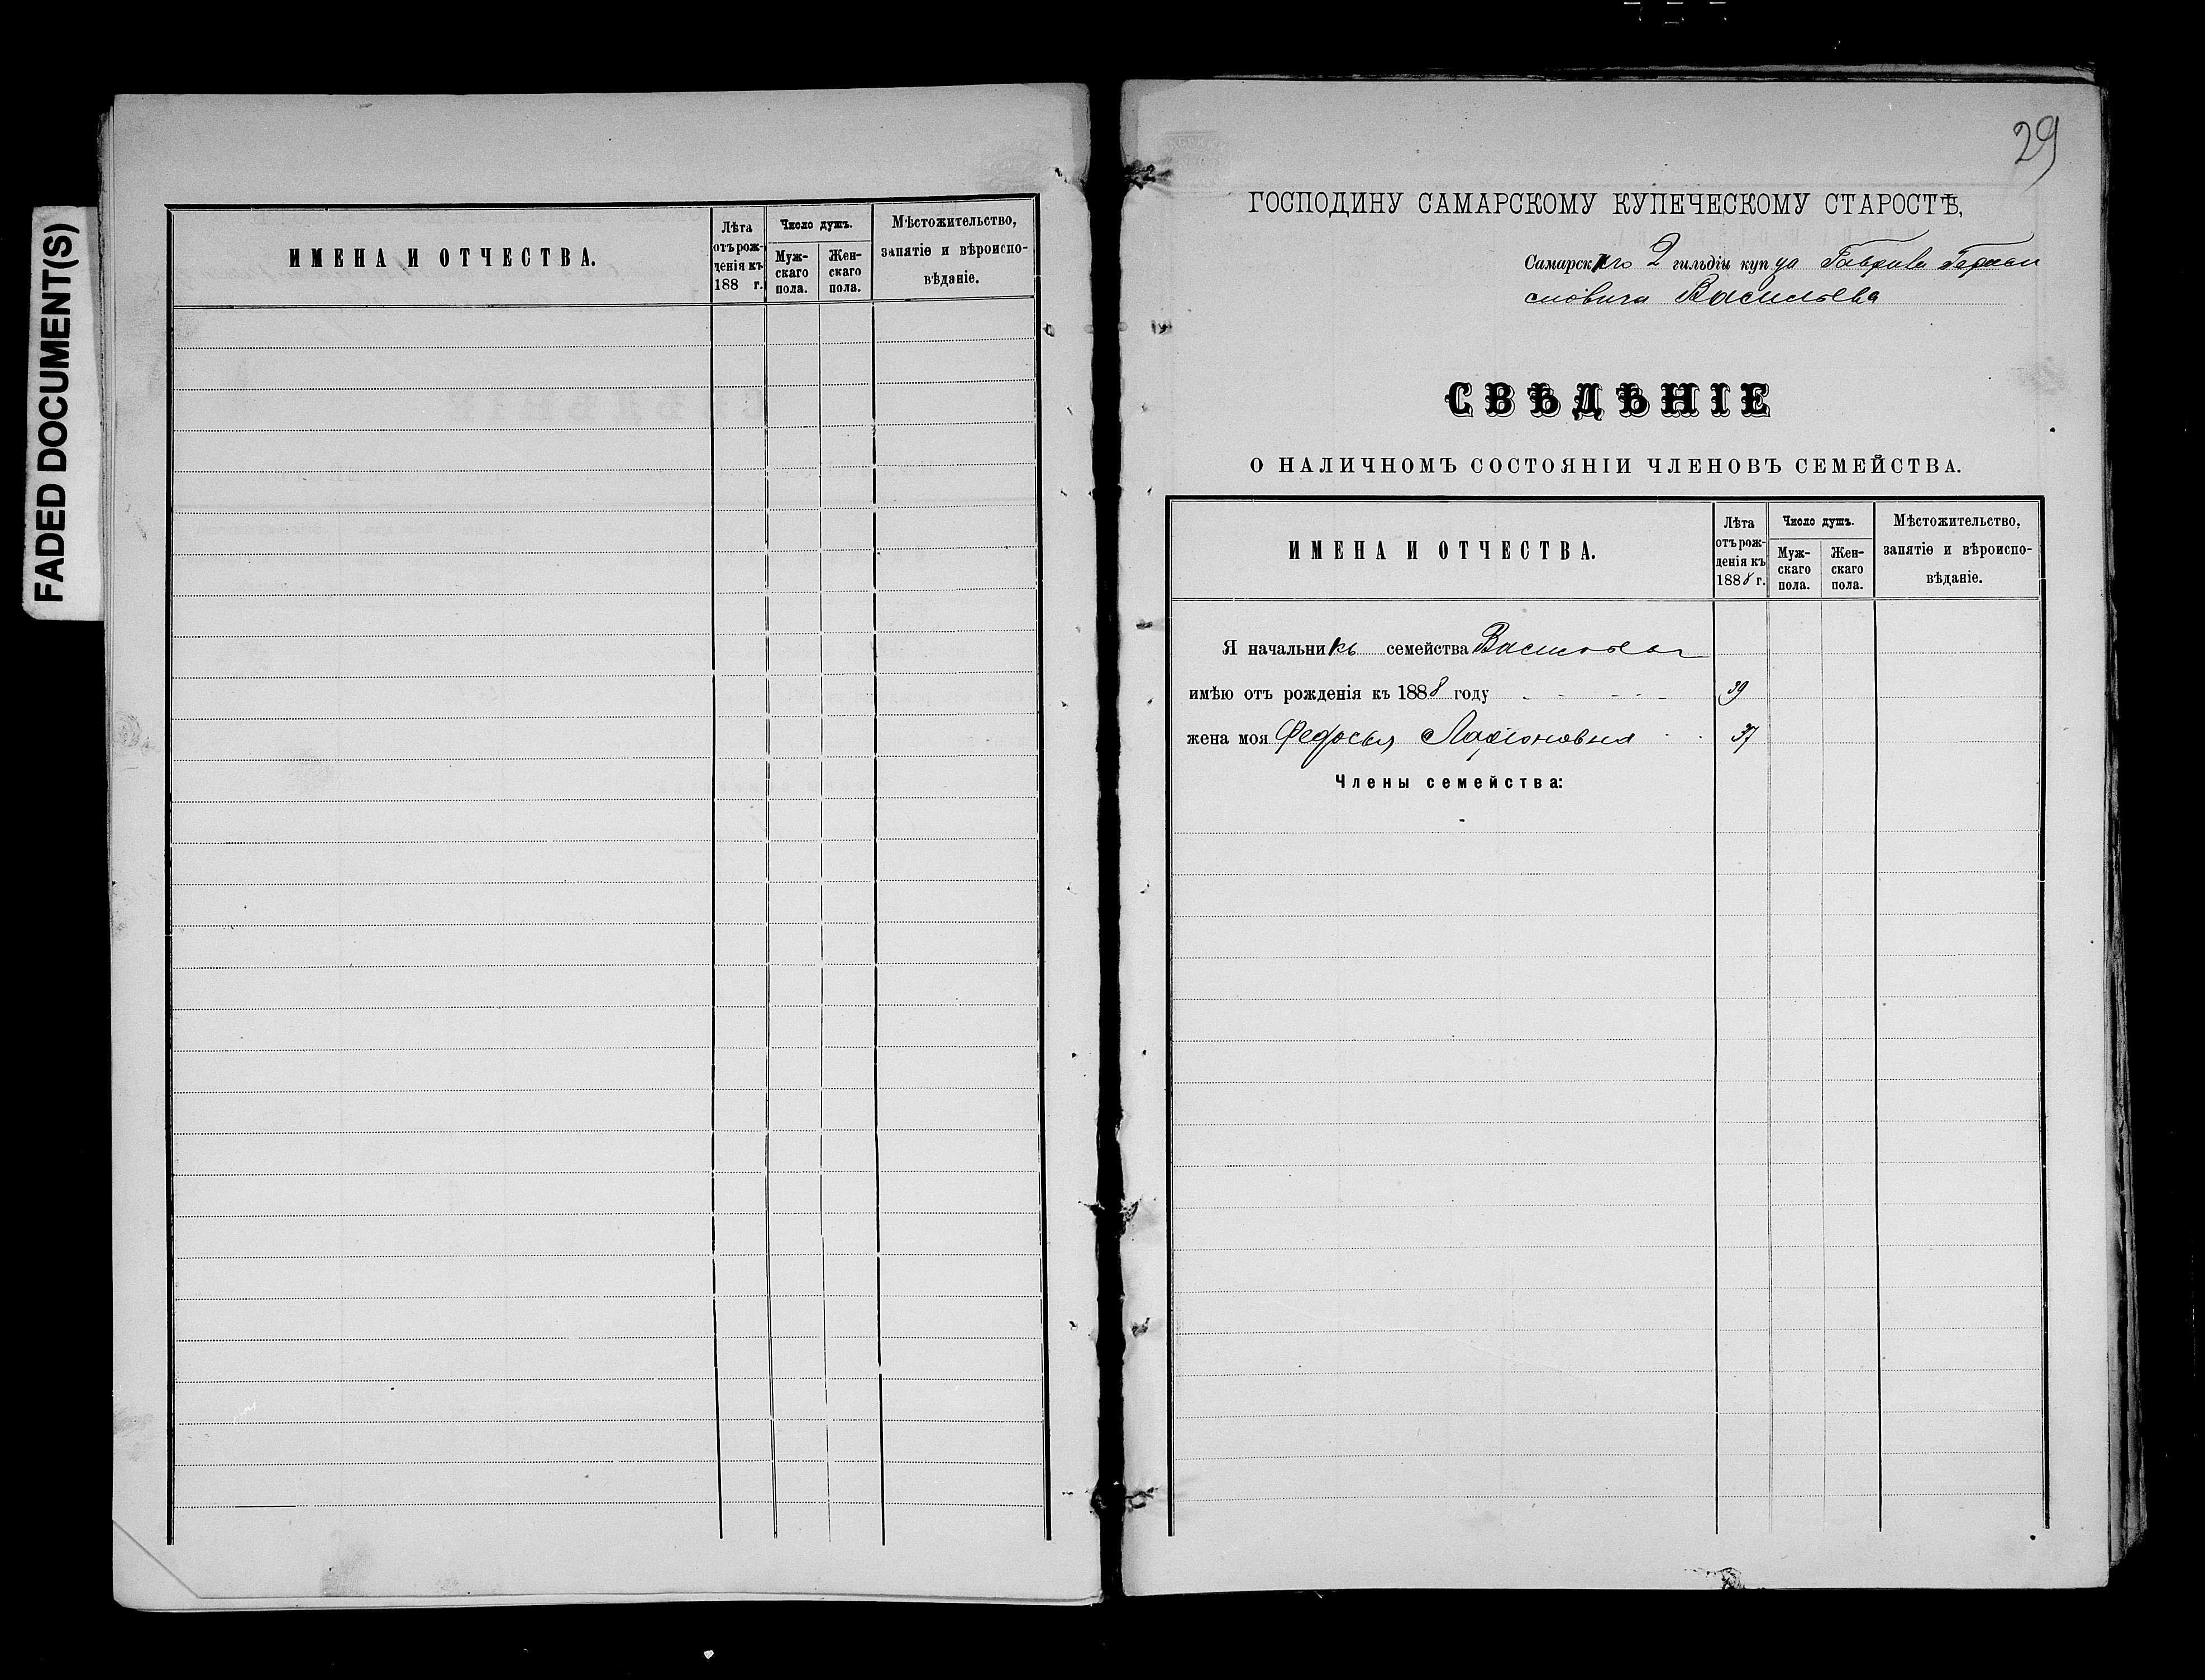 FADED DOCUMENT(S)
ИМЕНА И ОТЧЕСТВА.
Лѣта
отъ рож-
денія къ
188 г.
Число душъ.
Муж-
скаго
пола.
Жен-
скаго
пола.
Мѣстожительство,
занятіе и вѣроиспо-
вѣданіе.
29
ГОСПОДИНУ САМАРСКОМУ КУПЕЧЕСКОМУ СТАРОСТѢ,
Самарскаго 2 гильдіи купца Гаврила
Васильева
СВѢДѢНІЕ
О НАЛИЧНОМЪ СОСТОЯНІИ ЧЛЕНОВЪ СЕМЕЙСТВА.
ИМЕНА И ОТЧЕСТВА.
Лѣта
отъ рож-
денія къ
1888 г.
Число душъ.
Муж-
скаго
пола.
Жен-
скаго
пола.
Мѣстожительство,
занятіе и вѣроиспо-
вѣданіе.
Я начальникъ семейства Васильевъ
имѣю отъ рожденія къ 1888 году 39
жена моя Федосья Ларионовна 37
Члены семейства: